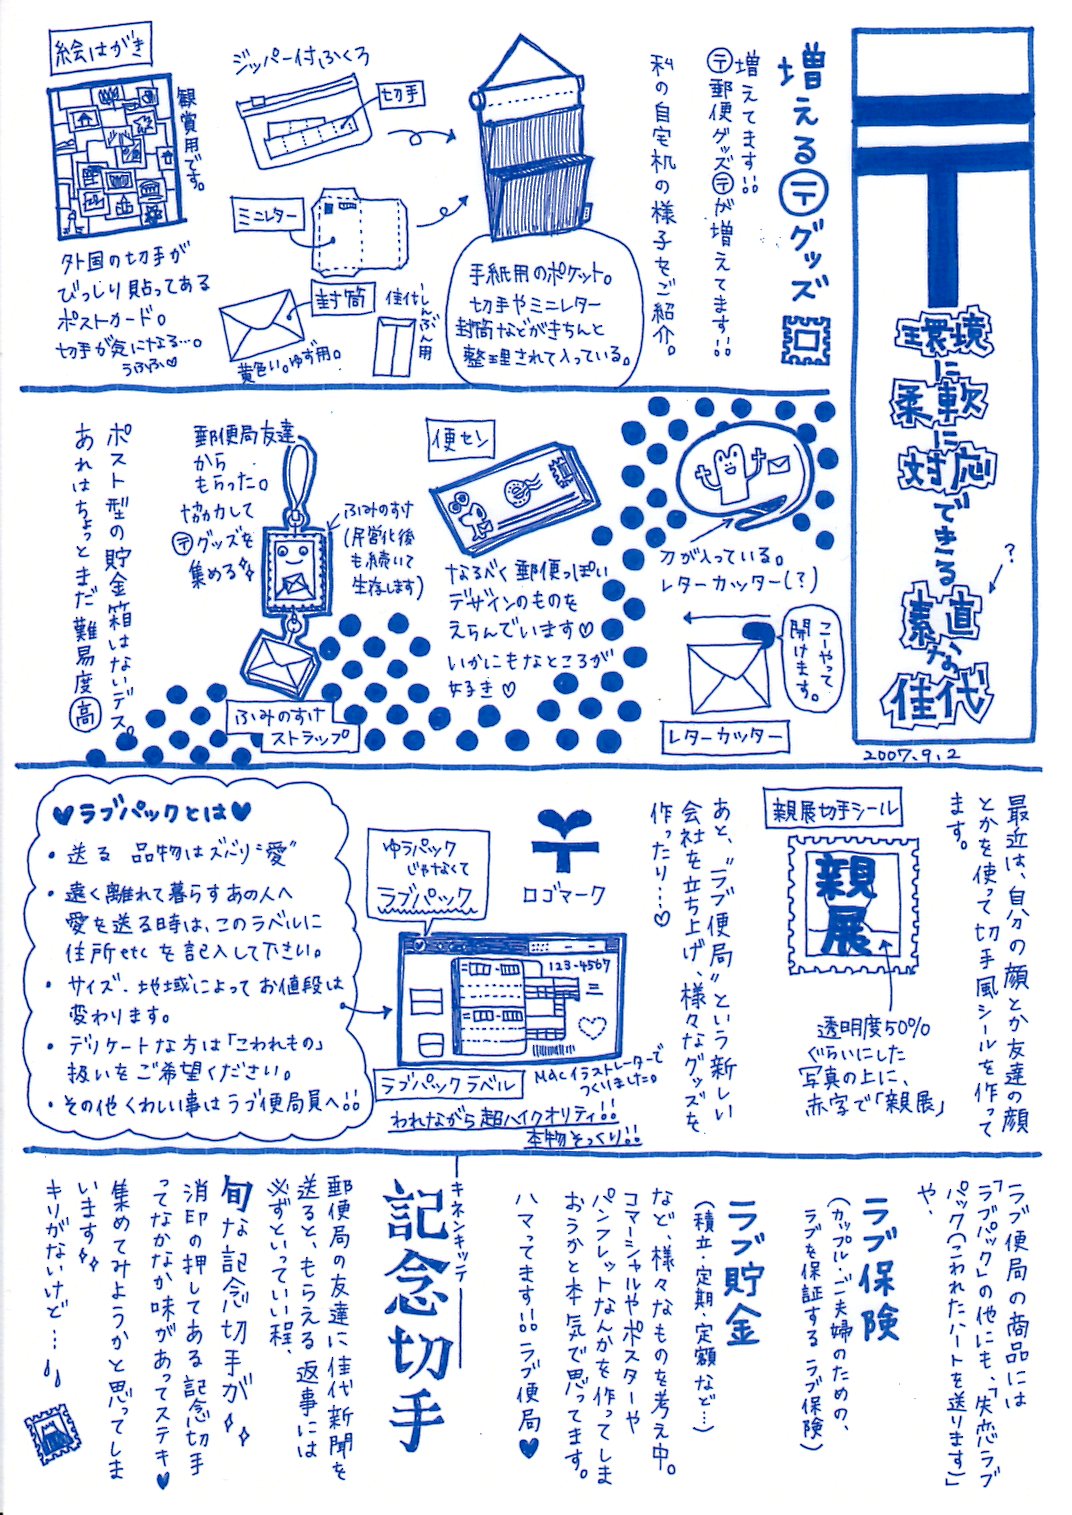 環境
に
柔軟
に
対応
できる
素直
な
佳代
?
2007.9.2
増える〒グッズ
増えてます!!
〒郵便グッズ〒が増えてます!!
私の自宅机の様子をご紹介。
手紙用のポケット。
切手やミニレター
封筒などがきちんと
整理されて入っている。
ジッパー付ふくろ
切手
ミニレター
封筒
黄色い。ゆず用。
佳代しんぶん用
絵はがき
観賞用です。
外国の切手が
びっしり貼ってある
ポストカード。
切手が気になる…。
うふふ♡
刀が入っている。
レターカッター(?)
こーやって
開けます。
レターカッター
便セン
なるべく郵便っぽい
デザインのものを
えらんでいます♡
いかにもなところが
好き♡
郵便局友達
から
もらった。
協力して
〒グッズを
集める
ふみのすけ
(民営化後
も続いて
生存します)
ふみのすけ
ストラップ
ポスト型の貯金箱はないデス。
あれはちょっとまだ難易度高
最近は、自分の顔とか友達の顔
とかを使って切手風シールを作って
ます。
親展切手シール
親展
透明度50%
ぐらいにした
写真の上に、
赤字で「親展」
あと、"ラブ便局"という新しい
会社を立ち上げ、様々なグッズを
作ったり…♡
ロゴマーク
ゆうパック
じゃなくて
ラブパック
123-4567
ラブパックラベル
MAcイラストレーターで
つくりました。
われながら超ハイクオリティ!!
本物そっくり!!
♥ラブパックとは♥
・送る 品物はズバリ"愛"
・遠く離れて暮らすあの人へ
愛を送る時は、このラベルに
住所etcを記入して下さい。
・サイズ、地域によってお値段は
変わります。
・デリケートな方は「こわれもの」
扱いをご希望ください。
・その他くわしい事はラブ便局員へ!!
ラブ便局の商品には
「ラブパック」の他にも、「失恋ラブ
パック(こわれたハートを送ります)」
や、
ラブ保険
(カップル・ご夫婦のための、
ラブを保証するラブ保険)
ラブ貯金
(積立・定期・定額など…)
など、様々なものを考え中。
コマーシャルやポスターや
パンフレットなんかを作ってしま
おうかと本気で思ってます。
ハマってます!!ラブ便局♥
キネンキッテ
記念切手
郵便局の友達に佳代新聞を
送ると、もらえる返事には
必ずといっていい程、
旬な記念切手が
消印の押してある記念切手
ってなかなか味があってステキ♥
集めてみようかと思ってしま
います
キリがないけど…